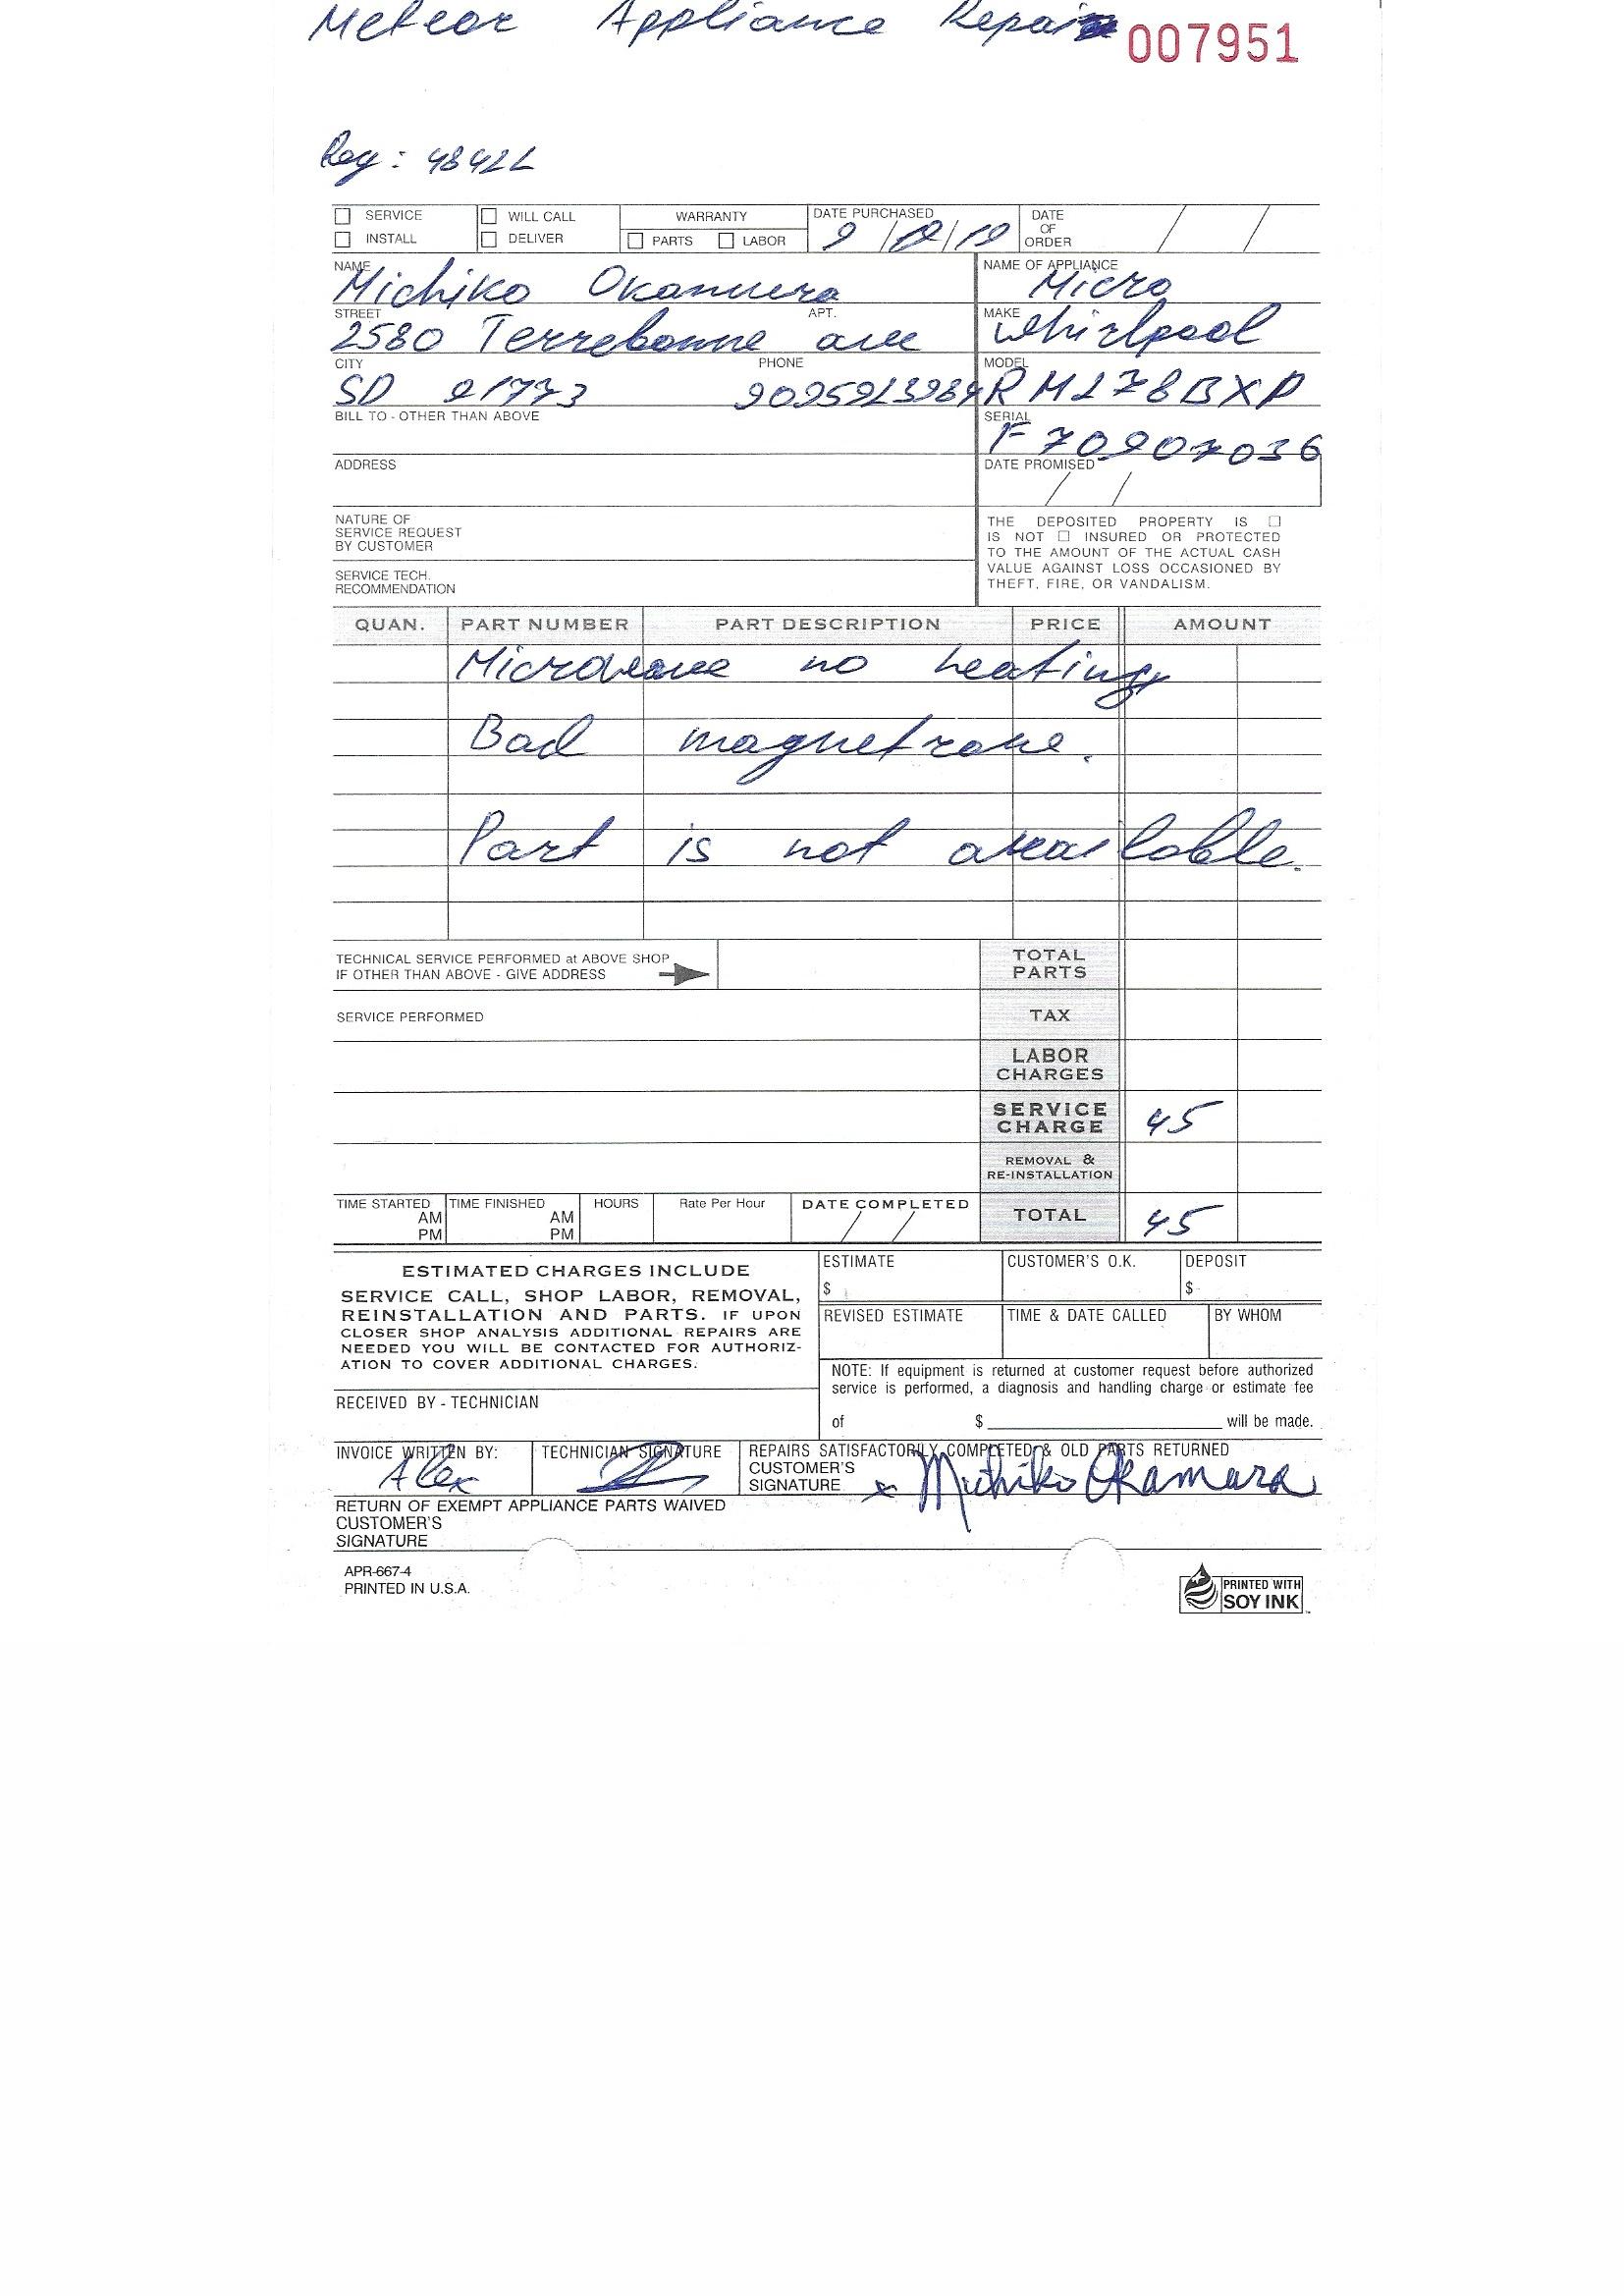 Meteor Appliance Repair 007951
Reg: 48421
SERVICE WILL CALL WARRANTY DATE PURCHASED DATE OF ORDER
INSTALL DELIVER PARTS LABOR 9/12/19
NAME NAME OF APPLIANCE
Michiko Okamura Micro
STREET APT. MAKE
2580 Terrebonne ave Whirlpool
CITY PHONE MODEL
SD 91773 9095923984 RM278BXP
BILL TO - OTHER THAN ABOVE SERIAL
F70907036
ADDRESS DATE PROMISED
NATURE OF
SERVICE REQUEST
BY CUSTOMER
SERVICE TECH.
RECOMMENDATION
THE DEPOSITED PROPERTY IS
IS NOT INSURED OR PROTECTED
TO THE AMOUNT OF THE ACTUAL CASH
VALUE AGAINST LOSS OCCASIONED BY
THEFT, FIRE, OR VANDALISM.
QUAN. PART NUMBER PART DESCRIPTION PRICE AMOUNT
Microwave no heating
Bad magnetrone.
Part is not available.
TECHNICAL SERVICE PERFORMED at ABOVE SHOP
IF OTHER THAN ABOVE - GIVE ADDRESS
TOTAL
PARTS
SERVICE PERFORMED TAX
LABOR
CHARGES
SERVICE
CHARGE 45
REMOVAL &
RE-INSTALLATION
TIME STARTED TIME FINISHED HOURS Rate Per Hour DATE COMPLETED TOTAL 45
AM AM
PM PM
ESTIMATED CHARGES INCLUDE
SERVICE CALL, SHOP LABOR, REMOVAL,
REINSTALLATION AND PARTS. IF UPON
CLOSER SHOP ANALYSIS ADDITIONAL REPAIRS ARE
NEEDED YOU WILL BE CONTACTED FOR AUTHORIZ-
ATION TO COVER ADDITIONAL CHARGES.
ESTIMATE CUSTOMER'S O.K. DEPOSIT
$ $
REVISED ESTIMATE TIME & DATE CALLED BY WHOM
NOTE: If equipment is returned at customer request before authorized
service is performed, a diagnosis and handling charge or estimate fee
of $ will be made.
RECEIVED BY - TECHNICIAN
INVOICE WRITTEN BY: TECHNICIAN SIGNATURE REPAIRS SATISFACTORILY COMPLETED & OLD PARTS RETURNED
Alex CUSTOMER'S
SIGNATURE x Michiko Okamura
RETURN OF EXEMPT APPLIANCE PARTS WAIVED
CUSTOMER'S
SIGNATURE
APR-667-4
PRINTED IN U.S.A.
PRINTED WITH
SOY INK